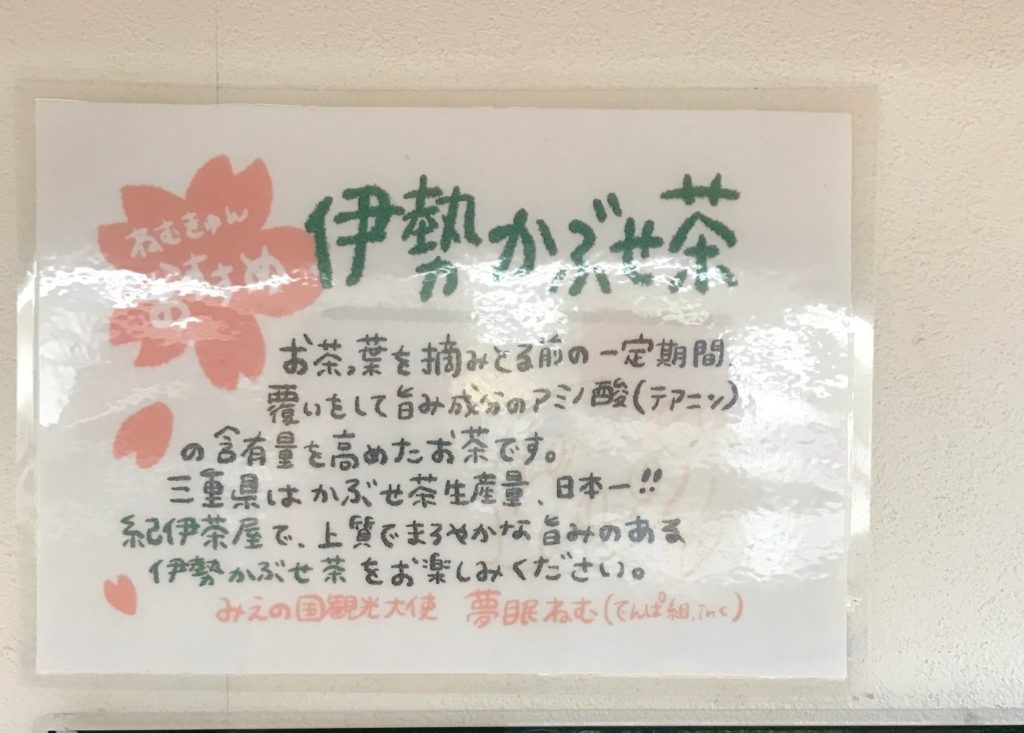 ねむきゅん
おすすめ
伊勢かぶせ茶
お茶っ葉を摘みとる前の一定期間、
覆いをして旨み成分のアミノ酸(テアニン)
の含有量を高めたお茶です。
三重県はかぶせ茶生産量、日本一!!
紀伊茶屋で、上質でまろやかな旨みのある
伊勢かぶせ茶をお楽しみください。
みえの国観光大使 夢眠ねむ(でんぱ組.inc)